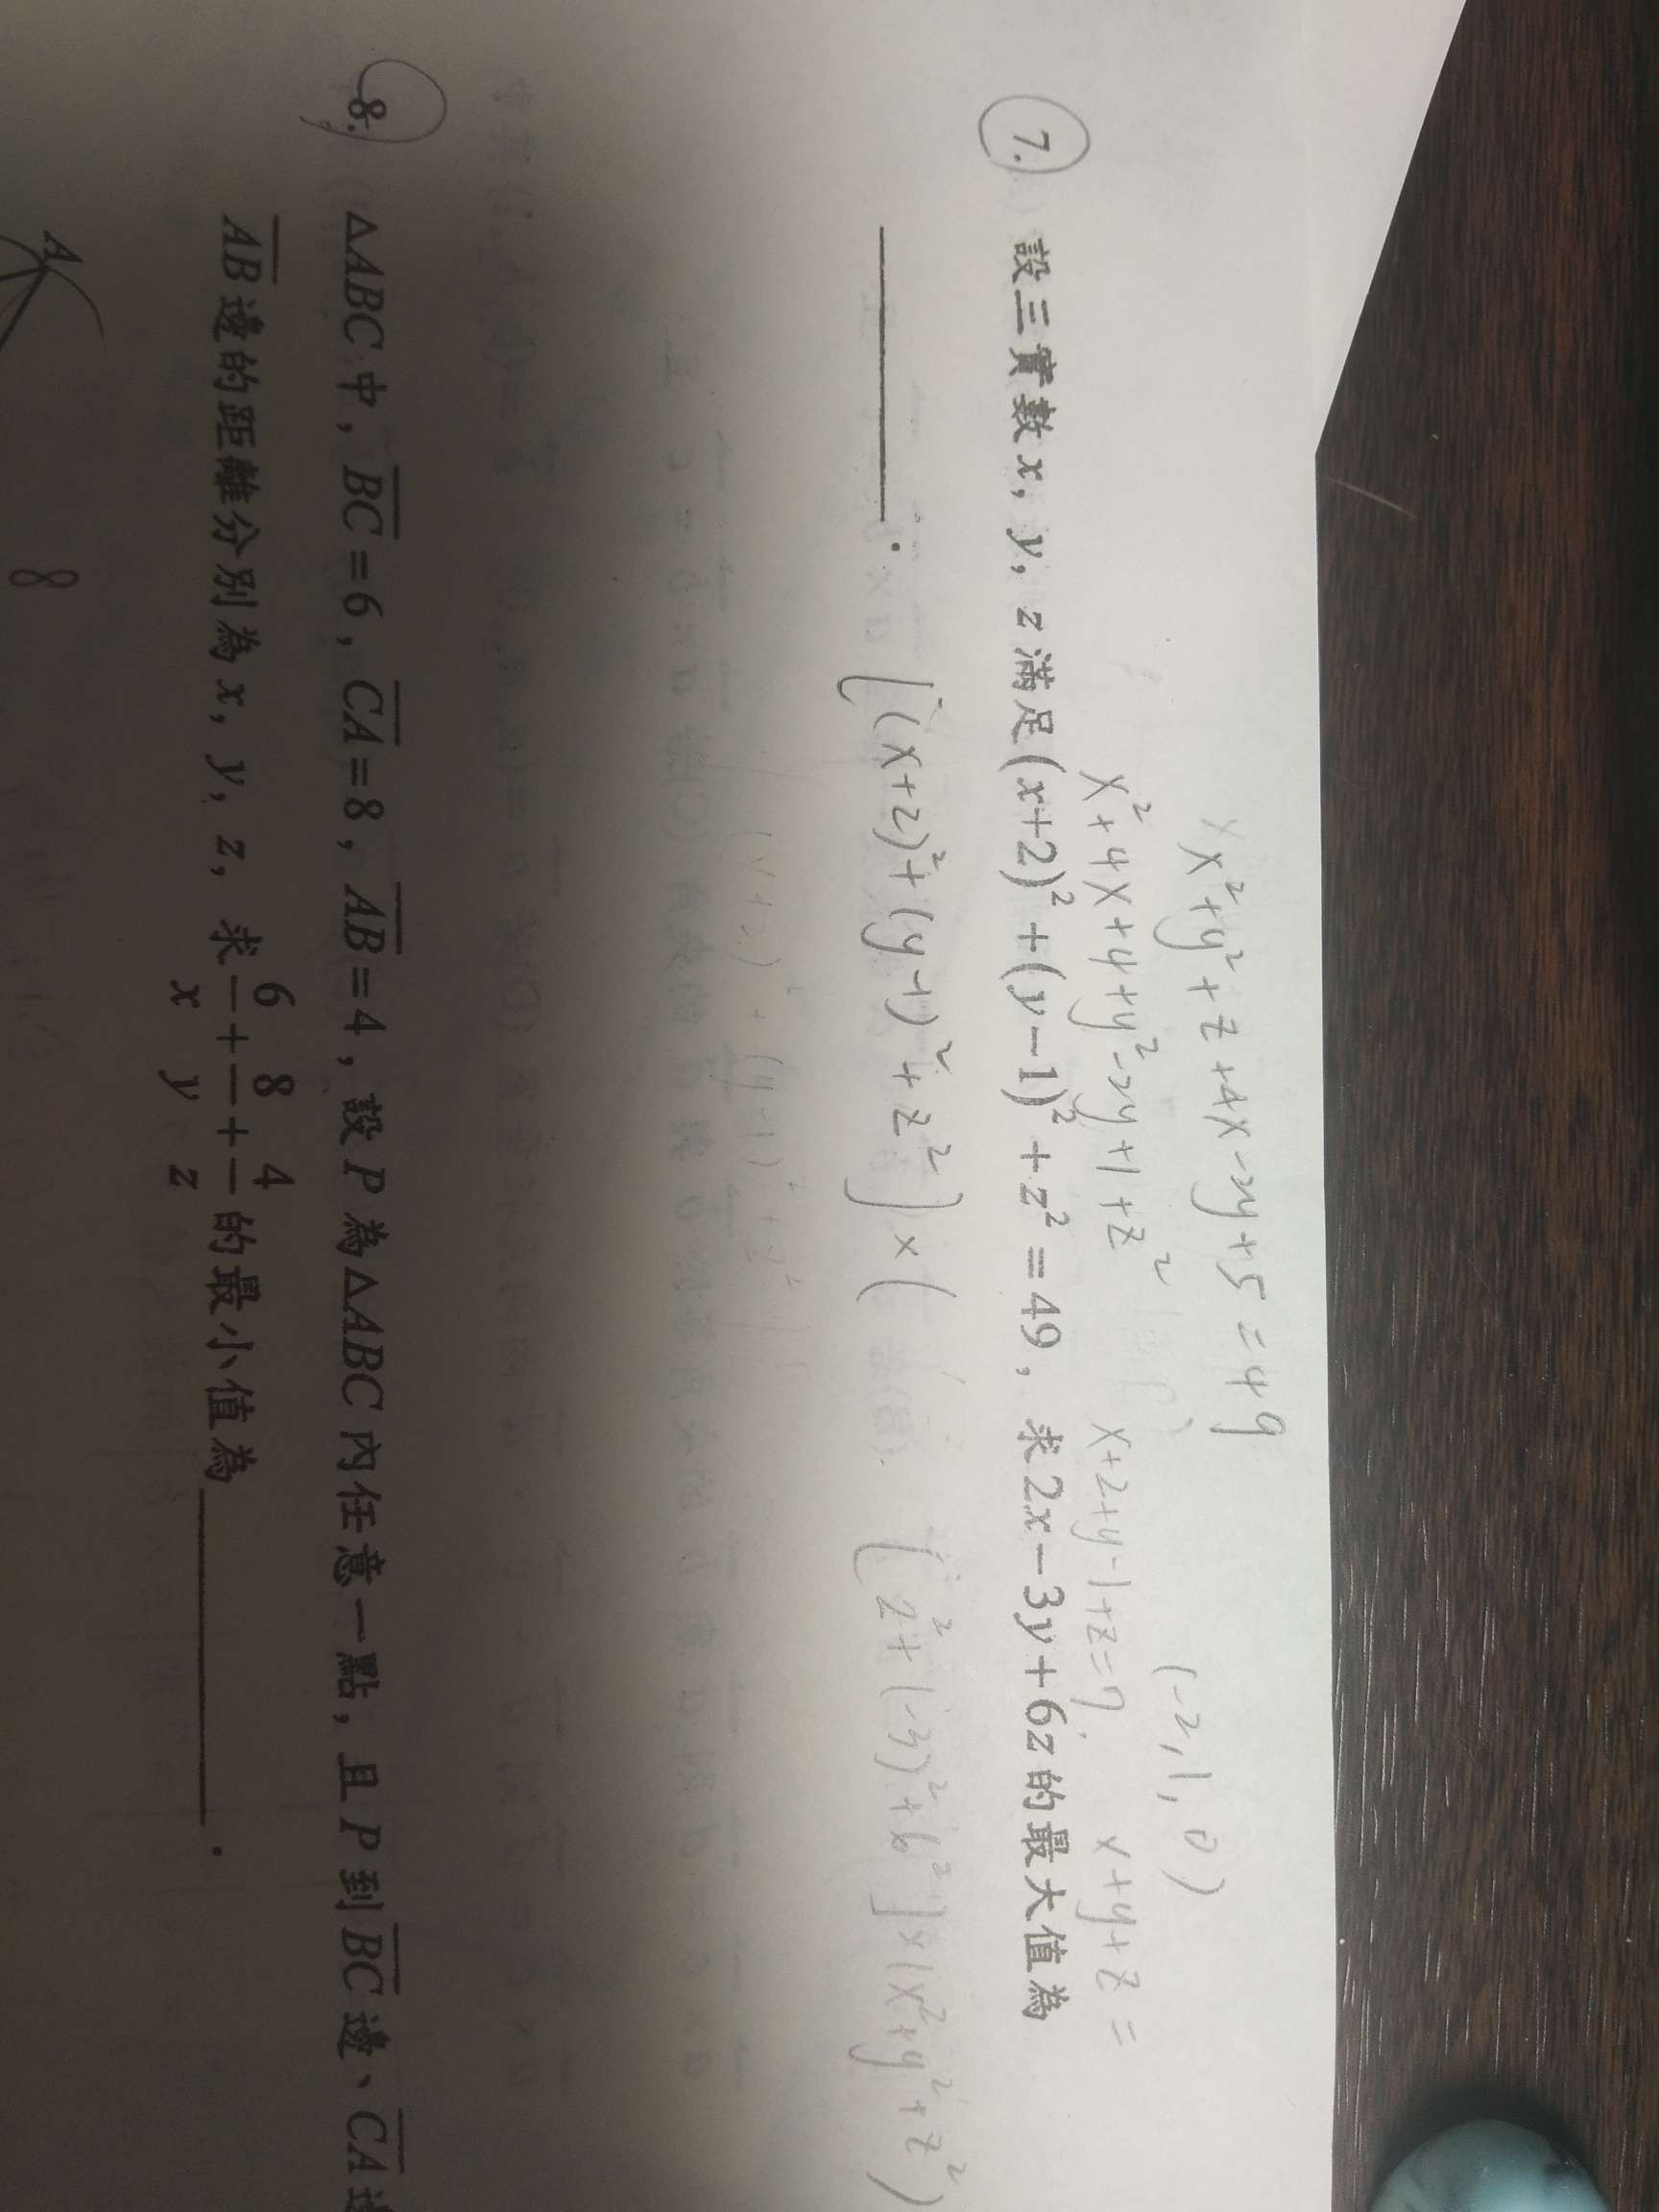 x²+y²+z+4x-2y+5=49
(-2,1,0)
x²+4x+4+y²-2y+1+z²
x+2+y-1+z=7
x+y+z=
7. 設三實數x, y, z滿足(x+2)²+(y-1)²+z²=49, 求2x-3y+6z的最大值為
________.
[(x+2)²+(y-1)²+z²]×(
[2²+(-3)²+6²]×(x²+y²+z²)
(y-1)²+z²
8. △ABC中, BC=6, CA=8, AB=4, 設P為△ABC內任意一點, 且P到BC邊、CA
AB邊的距離分別為x, y, z, 求6/x+8/y+4/z的最小值為________.
A
8